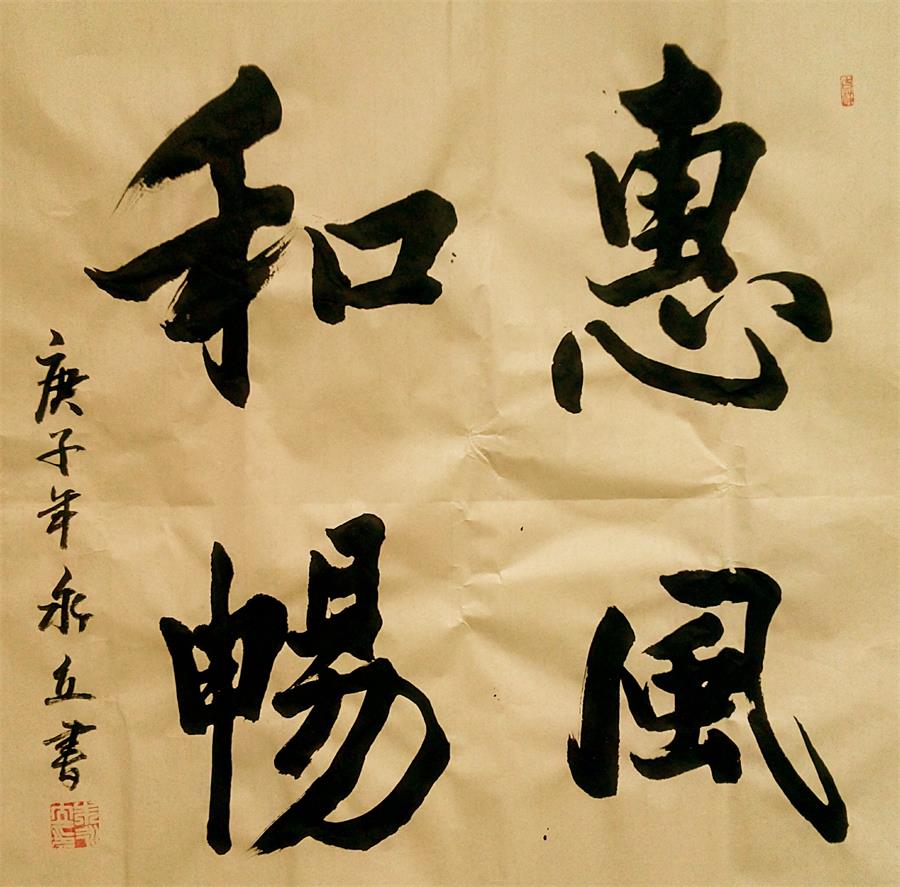 惠風
和暢
庚子年永立書